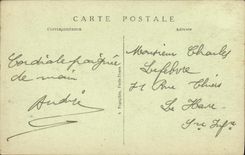 CARTE POSTALE
Correspondance
Adresse
Cordiale poignée
de main
André
Monsieur Charles
Lefebvre
71 Rue Thiers
Le Havre
Sne Infre